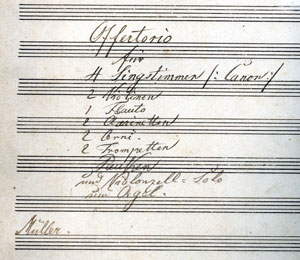 Offertorio
für
4 Singstimmen /: Canon :/
2 Violinen
1 Flauto
2 Clarinetten
2 Corni
2 Trompetten
Paucken
und Violonzell = Solo
und Orgel.
Müller.